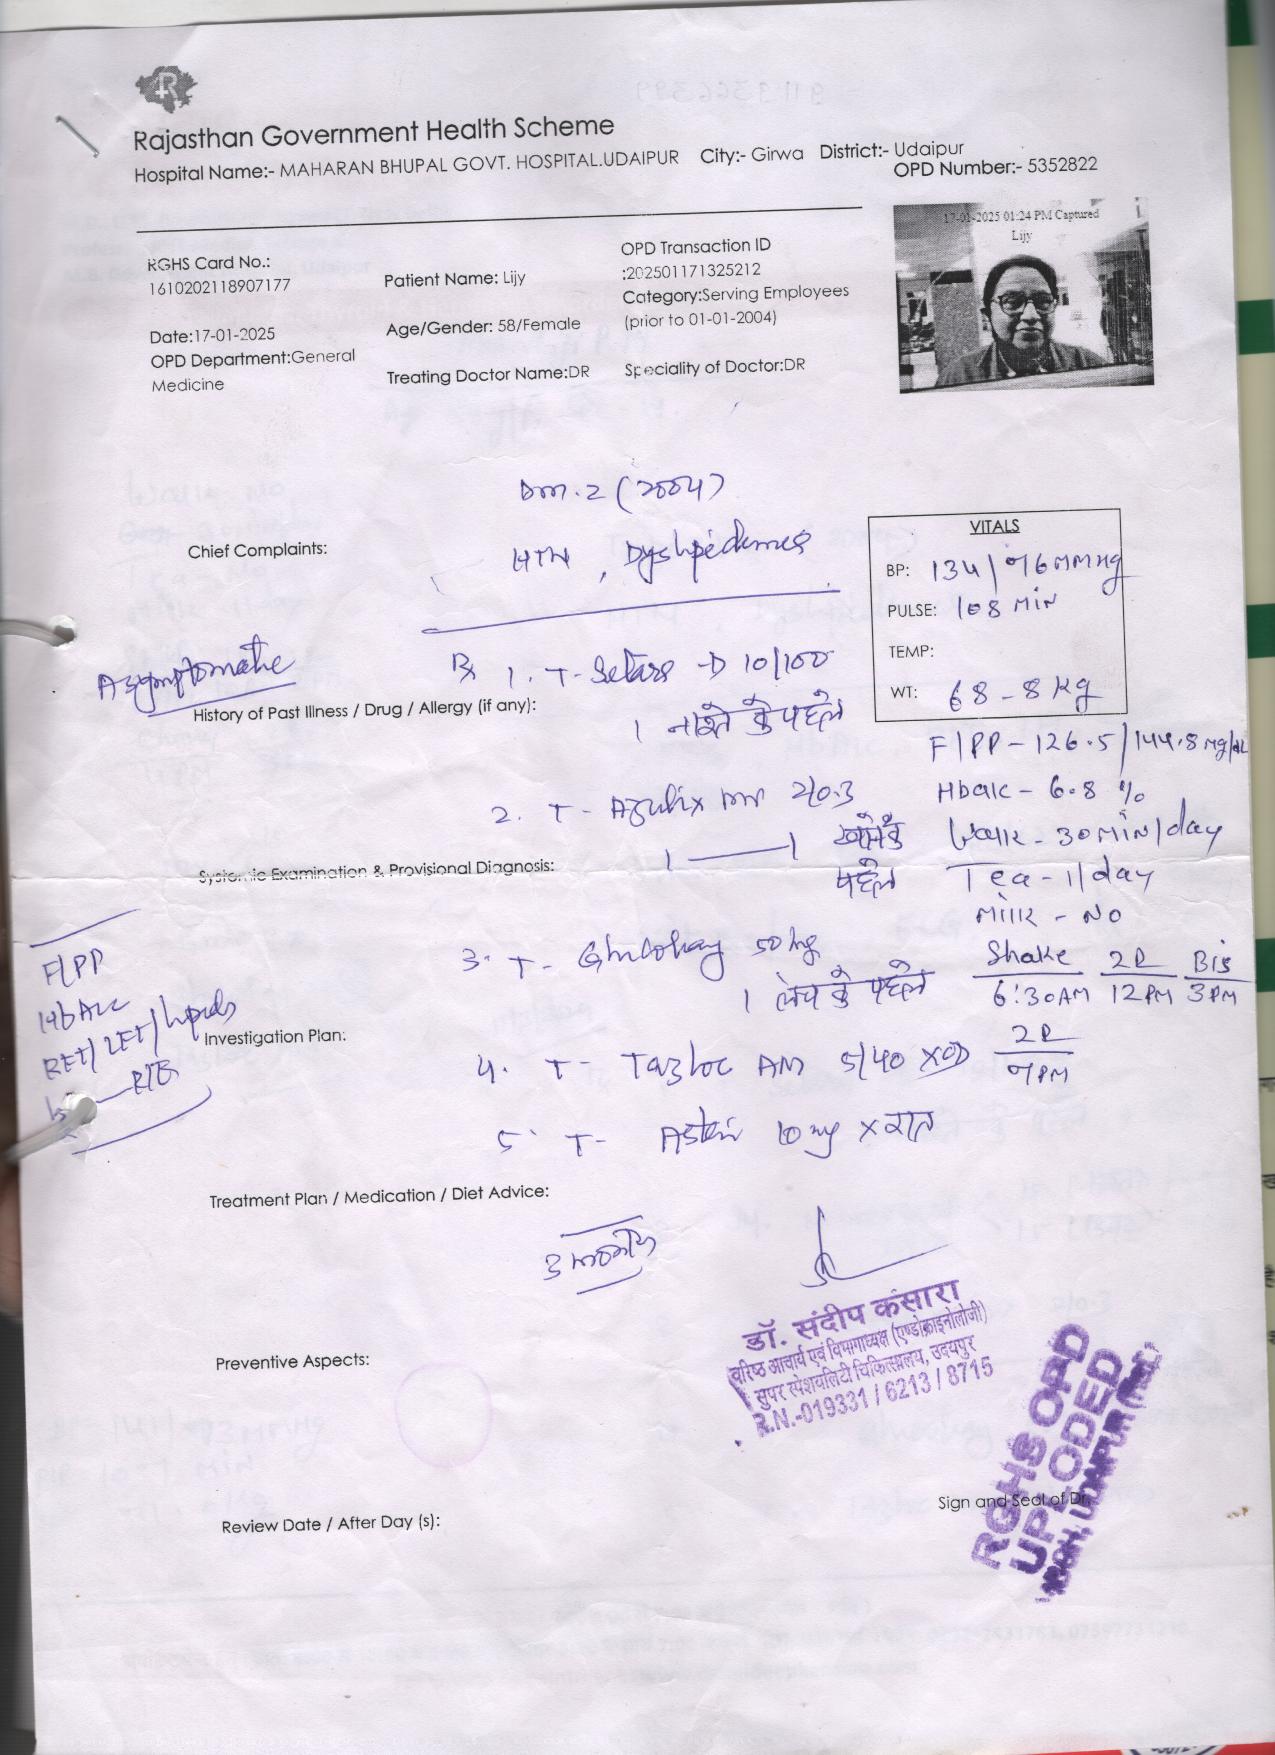 Rajasthan Government Health Scheme
Hospital Name:- MAHARAN BHUPAL GOVT. HOSPITAL.UDAIPUR City:- Girwa District:- Udaipur
OPD Number:- 5352822
RGHS Card No.:
1610202118907177
Date:17-01-2025
OPD Department:General
Medicine
Patient Name: Lijy
Age/Gender: 58/Female
Treating Doctor Name:DR
OPD Transaction ID
:202501171325212
Category:Serving Employees
(prior to 01-01-2004)
Speciality of Doctor:DR
17-01-2025 01:24 PM Captured
Lijy
Dm.2 (2004)
Chief Complaints:
HTN,
VITALS
BP: 134/76 MMHg
PULSE: 108 MiN
TEMP:
WT: 68-8 Kg
Asymptomatic
Rx 1. T- 10/100
History of Past Illness / Drug / Allergy (if any):
1 नाश्ते के पहले
F/PP - 126.5/144.8 Mg/dL
2. T- MR 2/0.3
Hba1c - 6.8 %
1 — 1 खाने के
पहले
Walk - 30 MiN/day
Systemic Examination & Provisional Diagnosis:
Tea - 1/day
Milk - NO
F/PP
HbA1c
RFT/LFT/Lipids
3. T- Glucobay 50 mg
1 लंच के पहले
Shake 2R Bis
6:30AM 12PM 3PM
2R
7PM
Investigation Plan:
4. T- Tazloc AM 5/40 X OD
5. T- 10 mg X रात
Treatment Plan / Medication / Diet Advice:
डॉ. संदीप कंसारा
वरिष्ठ आचार्य एवं विभागाध्यक्ष (एण्डोक्राइनोलॉजी)
सुपर स्पेशयलिटी चिकित्सालय, उदयपुर
R.N.-019331 / 6213 / 8715
Preventive Aspects:
RGHS OPD
UPLODED
MBGH, UDAIPUR (Raj.)
Sign and Seal of Dr.
Review Date / After Day (s):